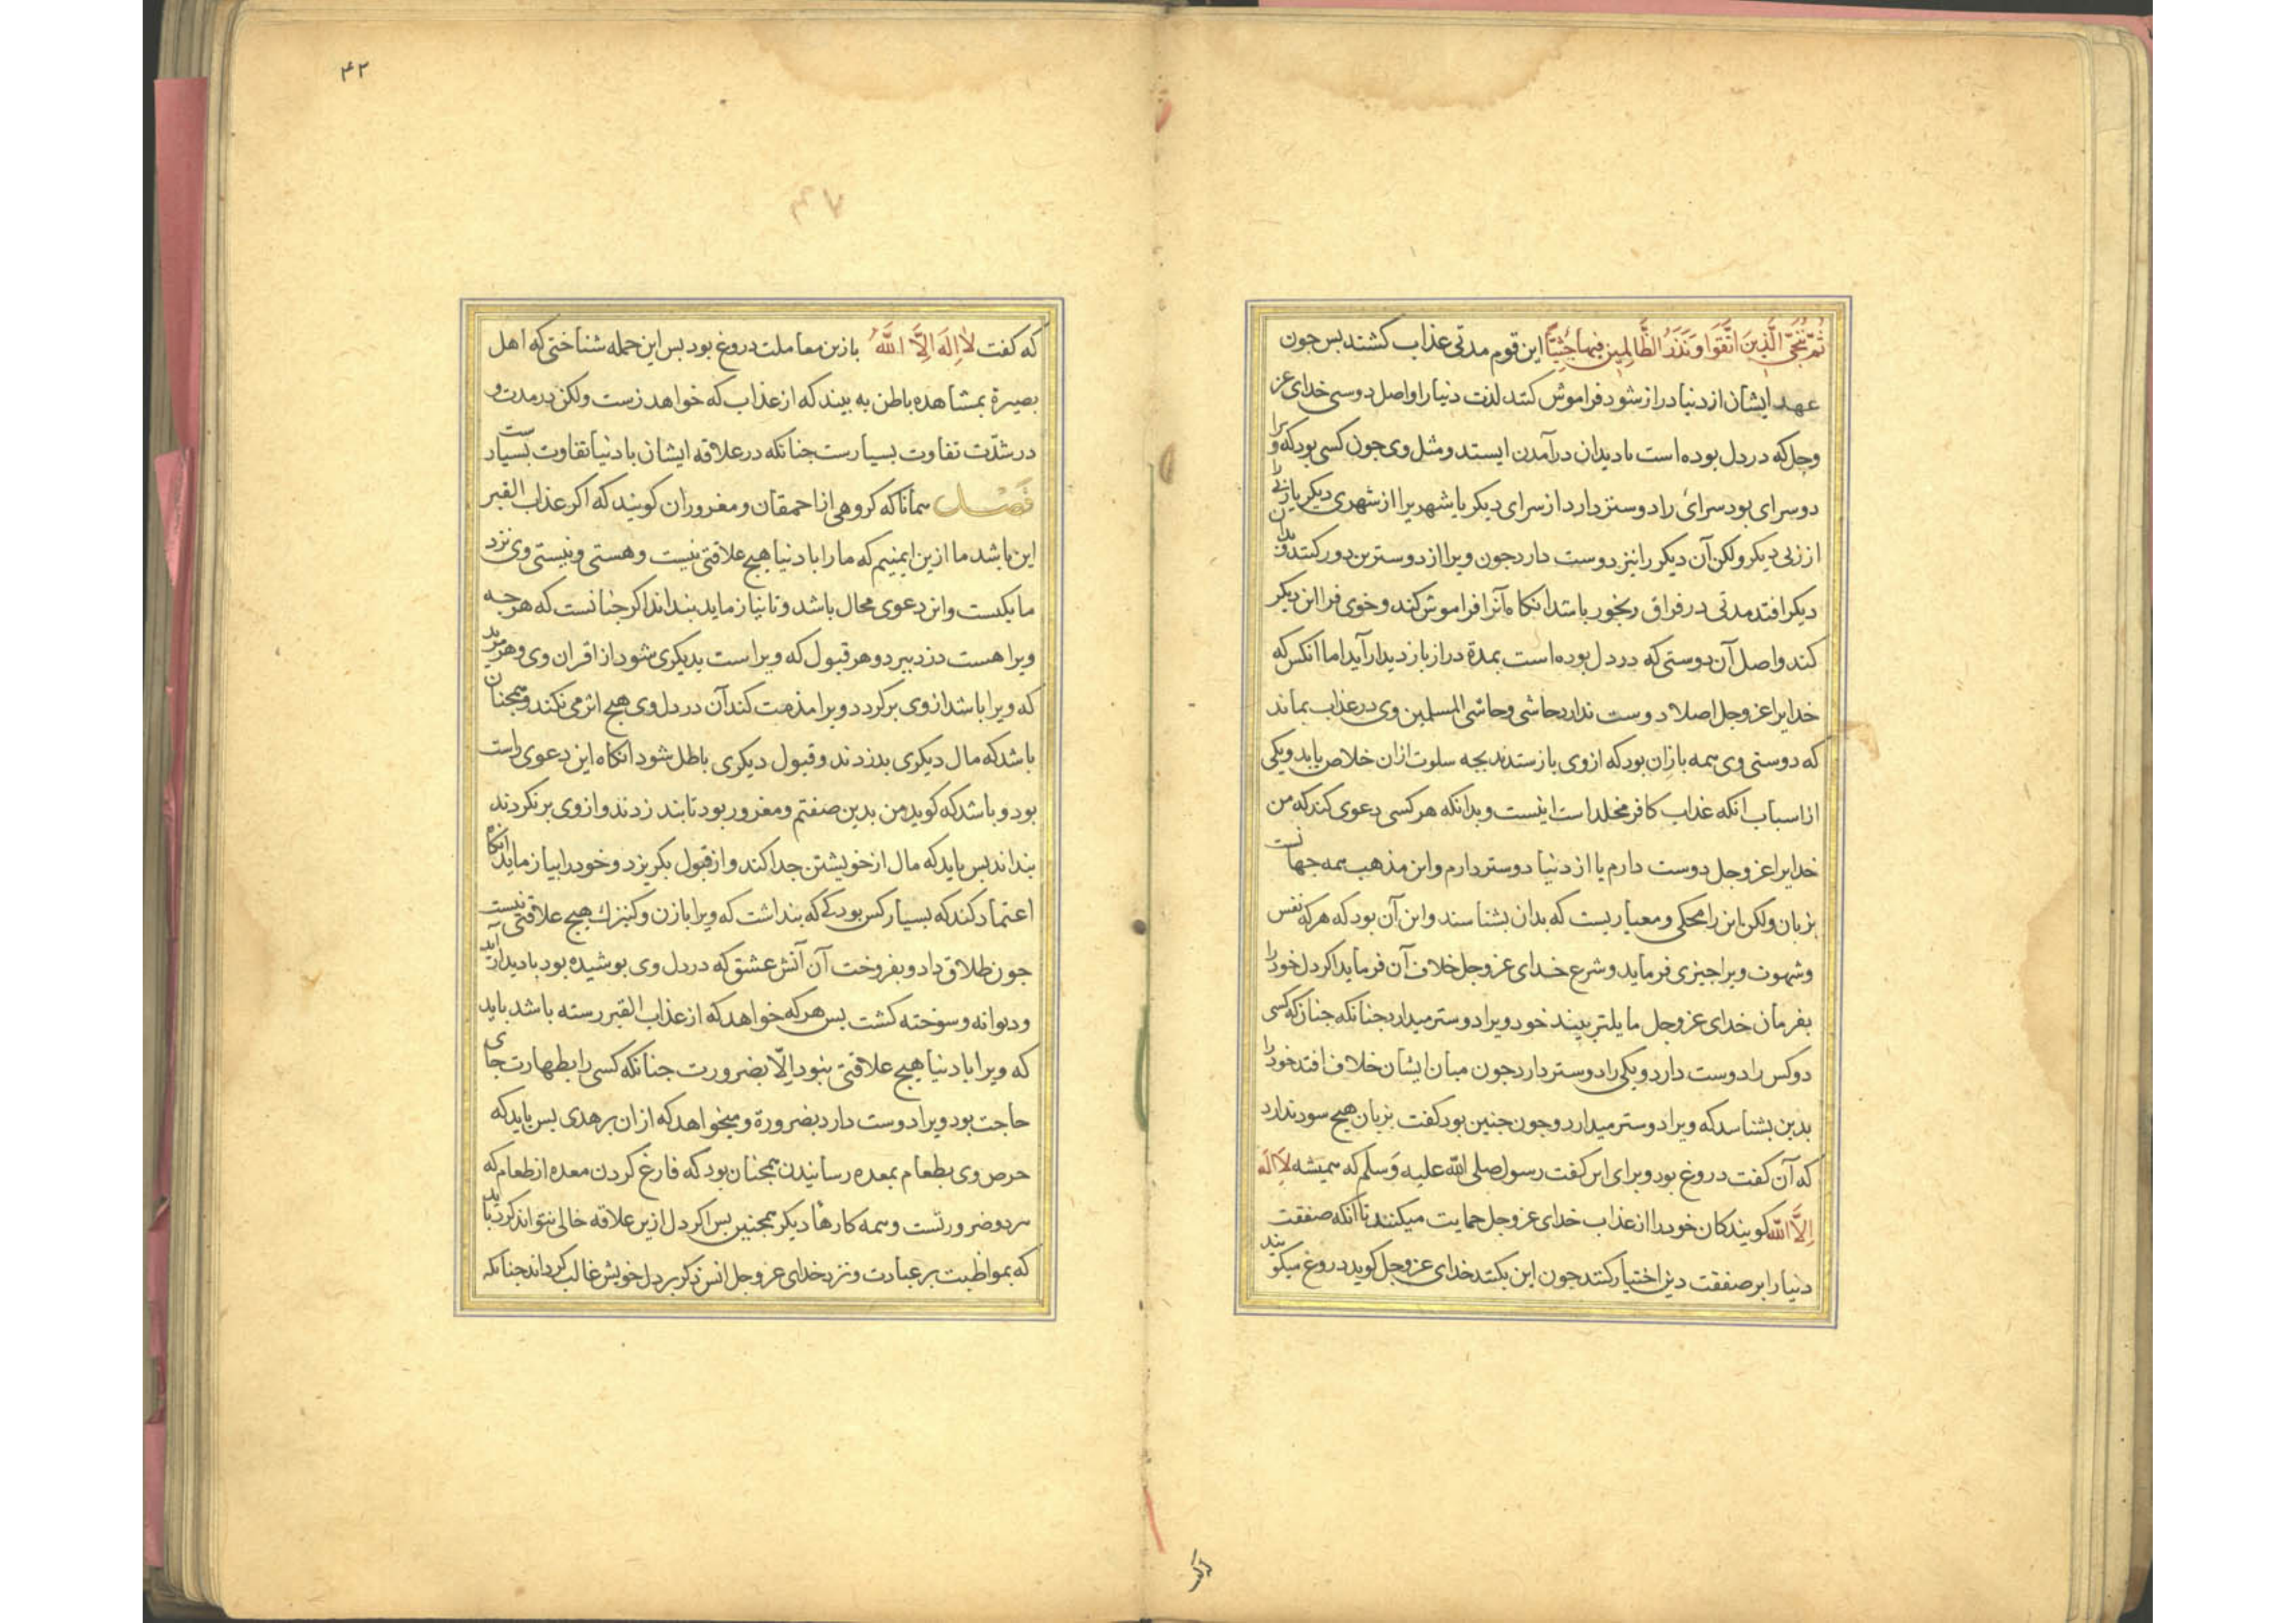 ثُمَّ نُنَجِّي الَّذِينَ اتَّقَوا وَنَذَرُ الظَّالِمِينَ فِيهَا جِثِيًّا این قوم مدتی عذاب کشند بس جون
عهد ایشان از دنیا دراز شود فراموش کنند لذت دنیا را و اصل دوستی خدای عز
وجل که در دل بوده است بادیدان درآمدن ایستد و مثل وی جون کسی بود که ویرا
دو سرای بود سرائ را دوستر دارد از سرای دیکر یا شهریرا از شهری دیکر یا زنی را
از زنی دیکر ولکن آن دیکر را نیز دوست دارد جون ویرا از دوسترین دور کنند و بدان
دیکر افتد مدتی در فراق رنجور باشد انکاه آنرا فراموش کند و خوی فرا این دیکر
کند و اصل آن دوستی که در دل بوده است بمدة دراز باز دیدار آید اما انکس که
خدایرا عز وجل اصلا دوست ندارد حاشی وحاشی المسلمین وی در عذاب بماند
که دوستی وی همه بازان بود که ازوی بازستدند بجه سلوت ازان خلاص یابد ویکی
از اسباب انکه عذاب کافر مخلد است اینست وبدانکه هر کسی دعوی کند که من
خدایرا عز وجل دوست دارم یا از دنیا دوستر دارم واین مذهب همه جهانست
بزبان ولکن این را محکی ومعیاریست که بدان بشناسند واین آن بود که هرکه نفس
وشهوت ویرا جیزی فرماید وشرع خدای عز وجل خلاف آن فرماید اکر دل خود را
بفرمان خدای عز وجل مایلتر بیند خود ویرا دوستر میدارد جنانکه جنان که کسی
دو کس را دوست دارد ویکی را دوستر دارد جون میان ایشان خلاف افتد خود را
بدین بشناسد که ویرا دوستر میدارد وجون جنین بود کفت بزبان هیج سود ندارد
که آن کفت دروغ بود وبرای این کفت رسول صلی الله علیه وَسلم که همیشه لا اله
اِلّا اللّه کویندکان خود را از عذاب خدای عز وجل حمایت میکنند تا آنکه صفقت
دنیا را بر صفقت دین اختیار کنند جون این بکنند خدای عز وجل کوید دروغ میکویند
۴۲
۴۷
که کفت لا اِلهَ اِلَّا اللَّهُ بازین معاملت دروغ بود بس این جمله شناختی که اهل
بصیرة بمشاهده باطن به بیند که از عذاب که خواهد رست ولکن در مدت و
در شدّت تفاوت بسیارست جنانکه در علاقه ایشان با دنیا تفاوت بسیارست
فَصْل همانا که کروهی از احمقان ومغروران کویند که اکر عذاب القبر
این باشد ما ازین ایمنیم که ما را با دنیا هیج علاقتی نیست وهستی ونیستی وی نزد
ما یکیست واین دعوی محال باشد و تا نیازماید بنداند اکر جنانست که هرجه
ویرا هست دزد ببرد وهر قبول که ویراست بدیکری شود از اقران وی وهر مرید
که ویرا باشد ازوی برکردد ویرا مذمت کند آن در دل وی هیج اثر می نکند وهمجنان
باشد که مال دیکری بدزدند وقبول دیکری باطل شود انکاه این دعوی راست
بود وباشد که کوید من بدین صفتم ومغرور بود تا بند زدند و ازوی برنکردند
بنداند بس باید که مال از خویشتن جدا کند واز قبول بکریزد وخود را بیازماید انکاه
اعتماد کند که بسیار کس بود که بنداشت که ویرا با زن وکنیزک هیج علاقتی نیست
جون طلاق داد وبفروخت آن آتش عشق که در دل وی بوشیده بود بادیدار آید
ودیوانه وسوخته کشت بس هرکه خواهد که از عذاب القبر رسته باشد باید
که ویرا با دنیا هیج علاقتی بنود اِلّا بضرورت جنانکه کسی را بطهارت جای
حاجت بود ویرا دوست دارد بضرورة ومیخواهد که ازان برهدی بس باید که
حرص وی بطعام بمعده رسانیدن همجنان بود که فارغ کردن معده از طعام که
هردو ضرورتست وهمه کارهٔا دیکر همجنین بس اکر دل ازین علاقه خالی نتواند کرد باید
که بمواظبت بر عبادت ونزد خدای عز وجل انس ذکر بر دل خویش غالب کرداند جنانکه